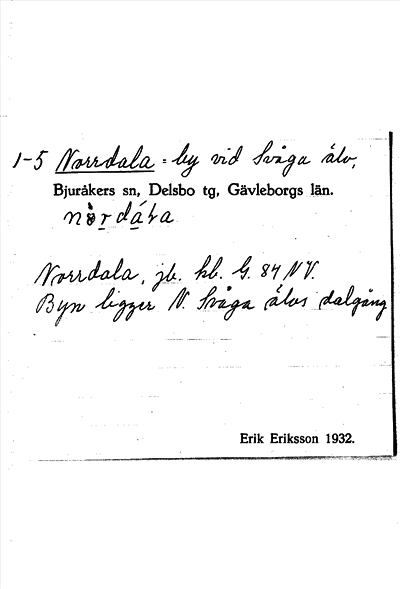 1-5 Norrdala = by vid Svåga älv,
Bjuråkers sn, Delsbo tg, Gävleborgs län.
Norrdala, jb. kb. G. 84 NV.
Byn ligger N. Svåga älvs dalgång
Erik Eriksson 1932.